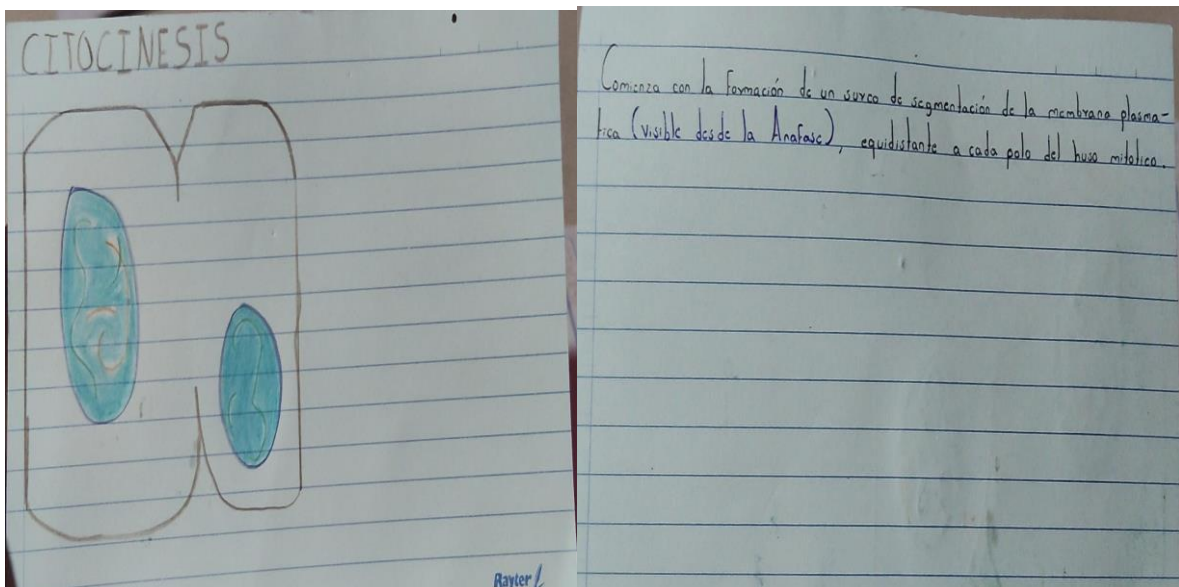 CITOCINESIS
Rayter
Comienza con la Formación de un surco de segmentación de la membrana plasma-
tica (visible desde la Anafase), equidistante a cada polo del huso mitotico.